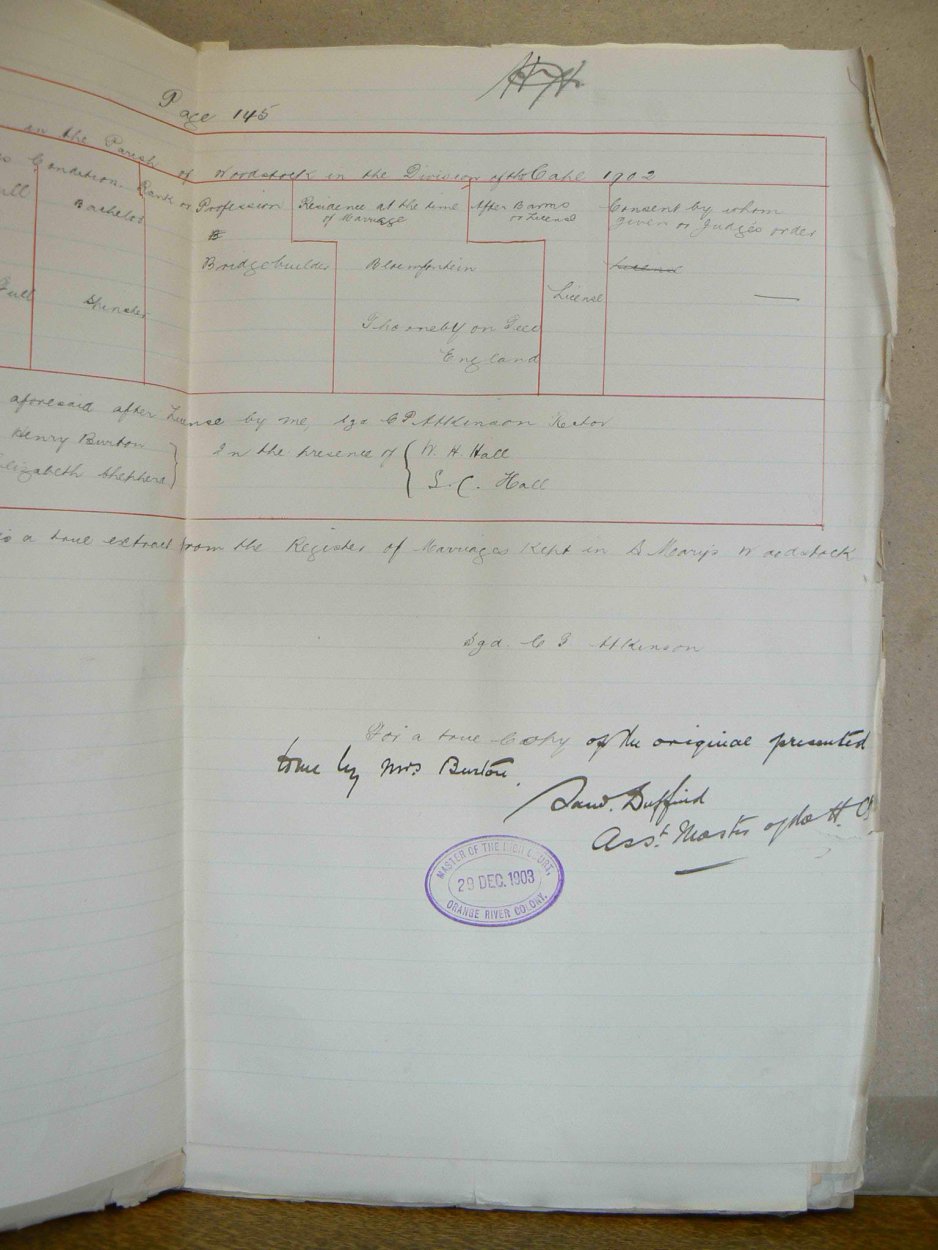 Page 145
in the Parish of Woodstock in the Division of the Cape 1902
Condition. Rank or Profession Residence at the time of Marriage After Banns or License Consent by whom given or Judges order
Bachelor
B
Bridgebuilder Bloemfontein License
Full Spinster Thorneby on Tees
England
aforesaid after License by me, Sgd C P Attkinson Rector
Henry Burton In the presence of W. H. Hall
Elizabeth Shepherd S. C. Hall
is a true extract from the Register of Marriages Kept in St Mary's Woodstock
Sgd. C G Atkinson
For a true Copy of the original presented
to me by Mrs Burton.
Asst Master of the H. C.
MASTER OF THE HIGH COURT,
29 DEC. 1903
ORANGE RIVER COLONY.